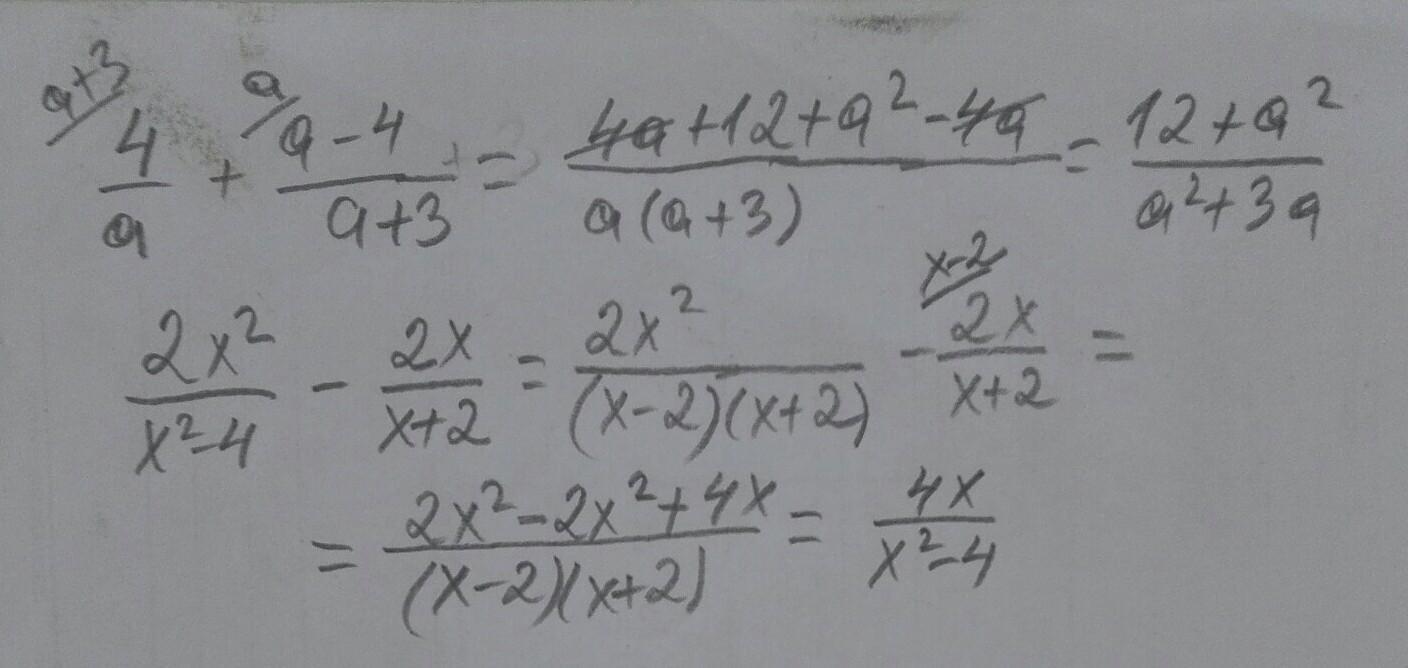 a+3/ 4/a + a/ (a-4)/(a+3) = (4a+12+a²-4a)/(a(a+3)) = (12+a²)/(a²+3a)
2x²/(x²-4) - 2x/(x+2) = 2x²/((x-2)(x+2)) - x-2/ 2x/(x+2) =
= (2x²-2x²+4x)/((x-2)(x+2)) = 4x/(x²-4)